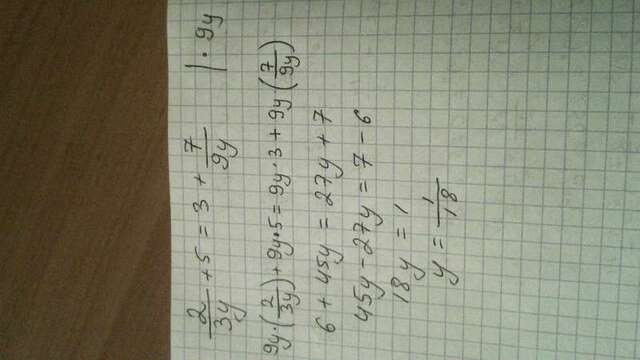 2/3y + 5 = 3 + 7/9y | · 9y
9y·(2/3y) + 9y·5 = 9y·3 + 9y(7/9y)
6 + 45y = 27y + 7
45y - 27y = 7 - 6
18y = 1
y = 1/18